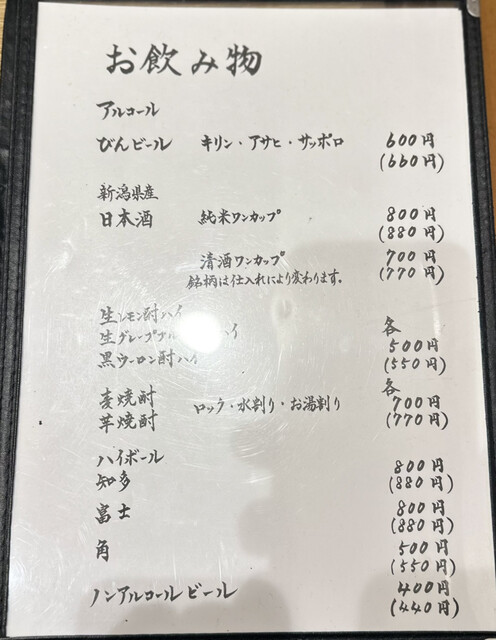 お飲み物
アルコール
びんビール キリン・アサヒ・サッポロ 600円
(660円)
新潟県産
日本酒 純米ワンカップ 800円
(880円)
清酒ワンカップ 700円
(770円)
銘柄は仕入れにより変わります。
生レモン酎ハイ 各
生グレープフル ハイ 500円
黒ウーロン酎ハイ (550円)
各
麦焼酎 ロック・水割り・お湯割り 700円
芋焼酎 (770円)
ハイボール
知多 800円
(880円)
富士 800円
(880円)
角 500円
(550円)
ノンアルコールビール 400円
(440円)